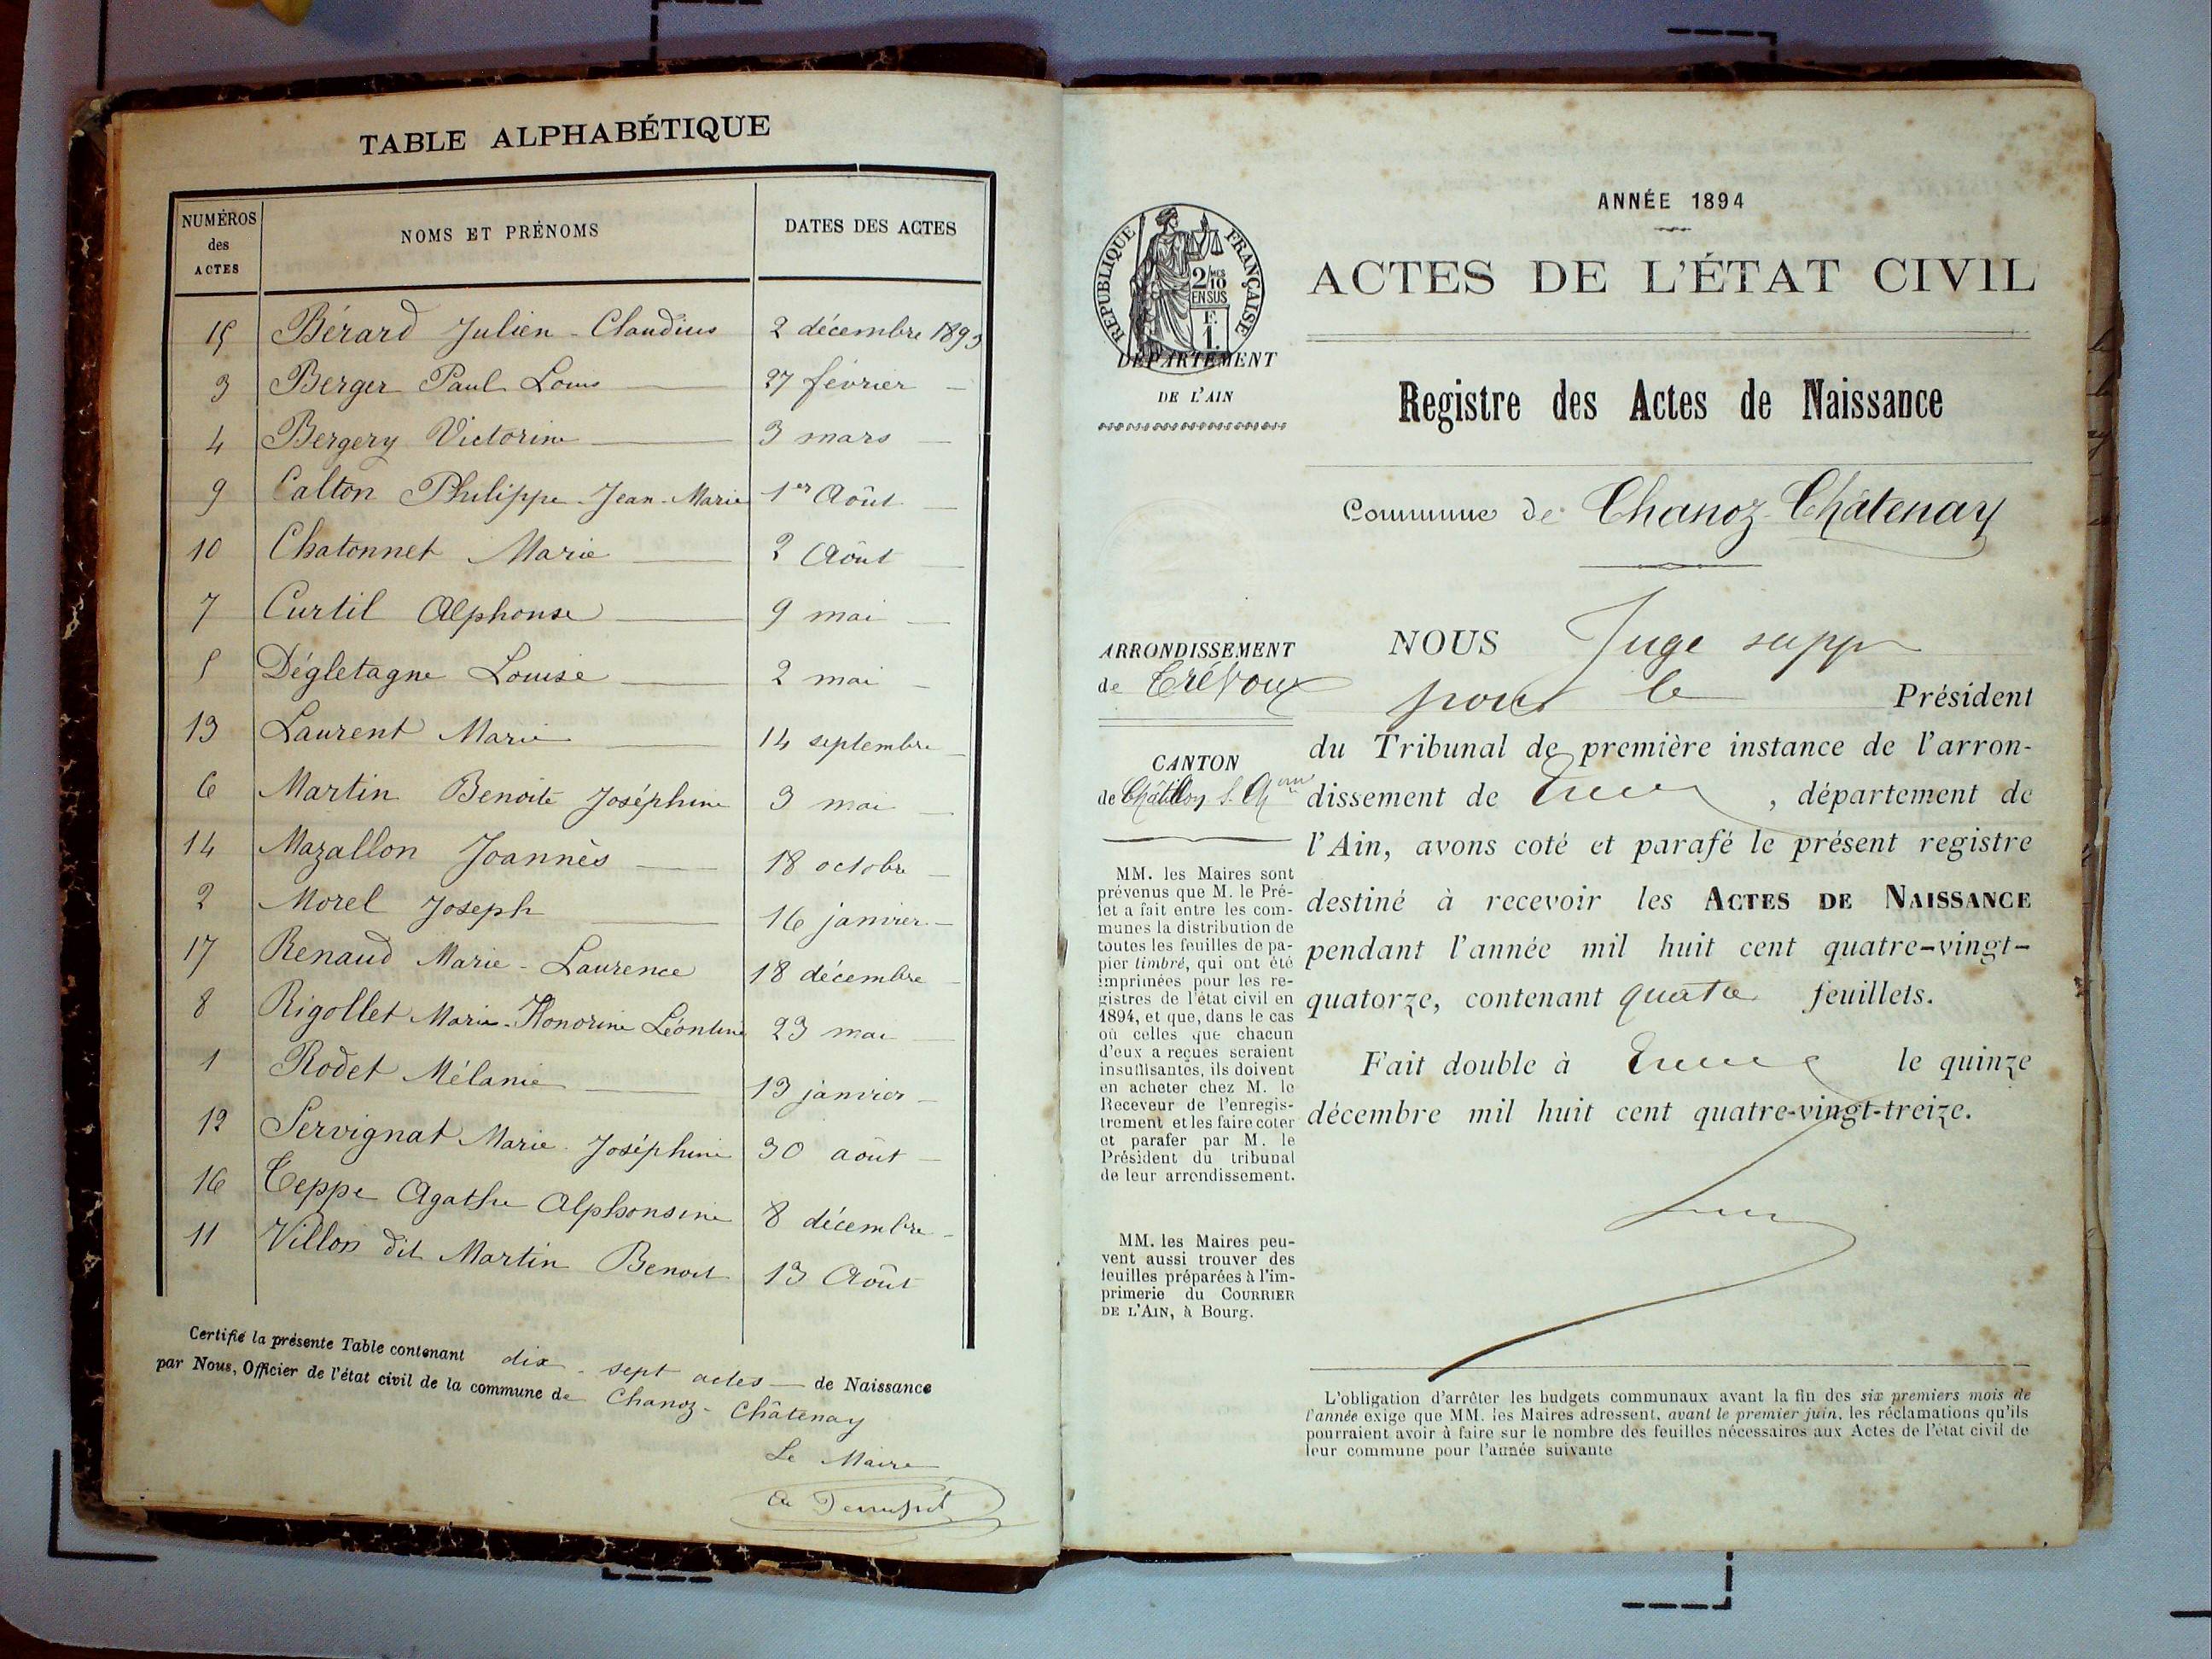 TABLE ALPHABÉTIQUE
NUMÉROS
des
ACTES
NOMS ET PRÉNOMS
DATES DES ACTES
15 Bérard Julien - Claudius 2 décembre 1893
3 Berger Paul Louis 27 février
4 Bergery Victorine 3 mars
9 Calton Philippe - Jean - Marie 1er Août
10 Chatonnet Marie 2 Août
7 Curtil Alphonse 9 mai
5 Dégletagne Louise 2 mai
13 Laurent Marie 14 septembre
6 Martin Benoite Joséphine 3 mai
14 Mazallon Joannès 18 octobre
2 Morel Joseph 16 janvier
17 Renaud Marie - Laurence 18 décembre
8 Rigollet Marie - Honorine Léontine 23 mai
1 Rodet Mélanie 13 janvier
12 Servignat Marie - Joséphine 30 août
16 Teppe Agathe Alphonsine 8 décembre
11 Villon dit Martin Benoit 13 Août
Certifié la présente Table contenant dix - sept actes de Naissance
par Nous, Officier de l'état civil de la commune de Chanoz - Châtenay
Le Maire
RÉPUBLIQUE FRANÇAISE
2/10 MES
EN SUS
F.
1.
DÉPARTEMENT
DE L'AIN
ARRONDISSEMENT
de Trévoux
CANTON
de Châtillon s. Chne
MM. les Maires sont
prévenus que M. le Pré-
fet a fait entre les com-
munes la distribution de
toutes les feuilles de pa-
pier timbré, qui ont été
imprimées pour les re-
gistres de l'état civil en
1894, et que, dans le cas
où celles que chacun
d'eux a reçues seraient
insuffisantes, ils doivent
en acheter chez M. le
Receveur de l'enregis-
trement et les faire coter
et parafer par M. le
Président du tribunal
de leur arrondissement.
MM. les Maires peu-
vent aussi trouver des
feuilles préparées à l'im-
primerie du COURRIER
DE L'AIN, à Bourg.
ANNÉE 1894
ACTES DE L'ÉTAT CIVIL
Registre des Actes de Naissance
Commune de Chanoz-Châtenay
NOUS Juge supp
pour le Président
du Tribunal de première instance de l'arron-
dissement de , département de
l'Ain, avons coté et parafé le présent registre
destiné à recevoir les ACTES DE NAISSANCE
pendant l'année mil huit cent quatre-vingt-
quatorze, contenant quatre feuillets.
Fait double à le quinze
décembre mil huit cent quatre-vingt-treize.
L'obligation d'arrêter les budgets communaux avant la fin des six premiers mois de
l'année exige que MM. les Maires adressent, avant le premier juin, les réclamations qu'ils
pourraient avoir à faire sur le nombre des feuilles nécessaires aux Actes de l'état civil de
leur commune pour l'année suivante